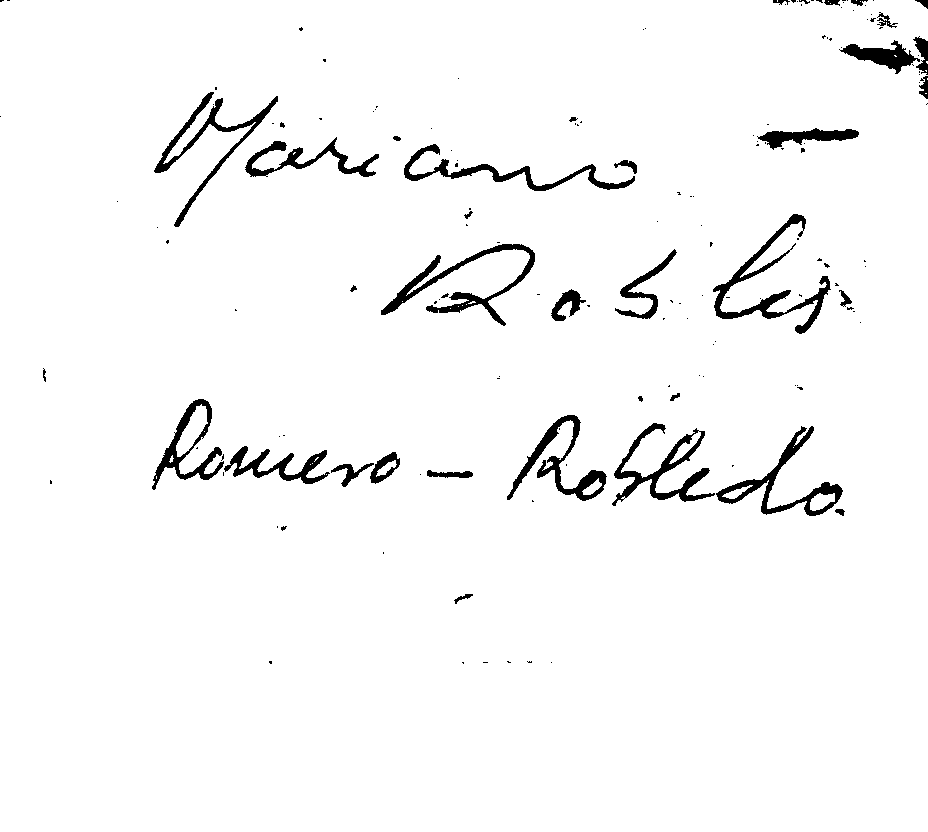 Mariano -
Robles
Romero - Robledo.